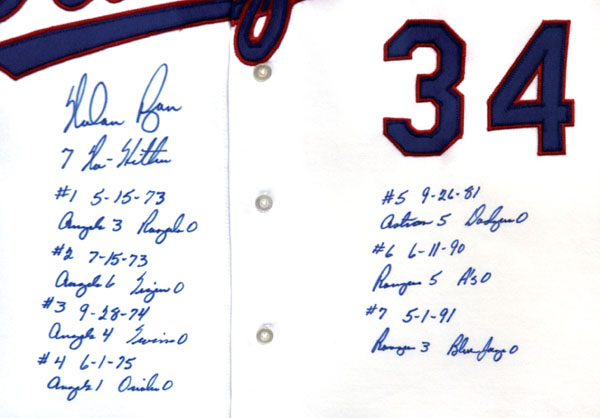 34
Nolan Ryan
7 No-Hitters
#1 5-15-73
Angels 3 Royals 0
#2 7-15-73
Angels 6 Tigers 0
#3 9-28-74
Angels 4 Twins 0
#4 6-1-75
Angels 1 Orioles 0
#5 9-26-81
Astros 5 Dodgers 0
#6 6-11-90
Rangers 5 A's 0
#7 5-1-91
Rangers 3 Blue Jays 0